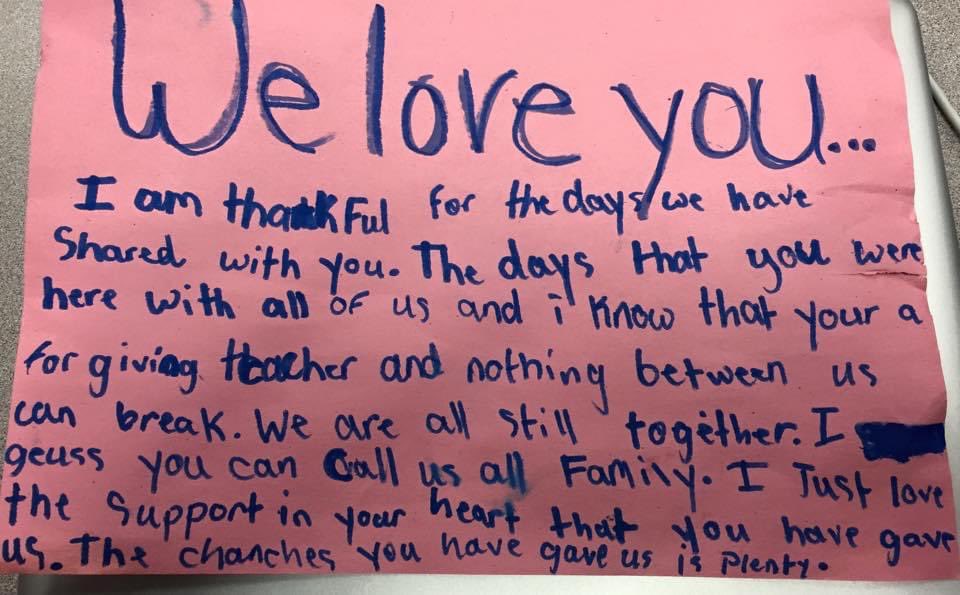 We love you...
I am thankful for the days we have
Shared with you. The days that you were
here with all of us and i know that your a
forgiving teacher and nothing between us
can break. We are all still together. I
geuss you can call us all Family. I Just love
the Support in your heart that you have gave
us. The chanches you have gave us is Plenty.